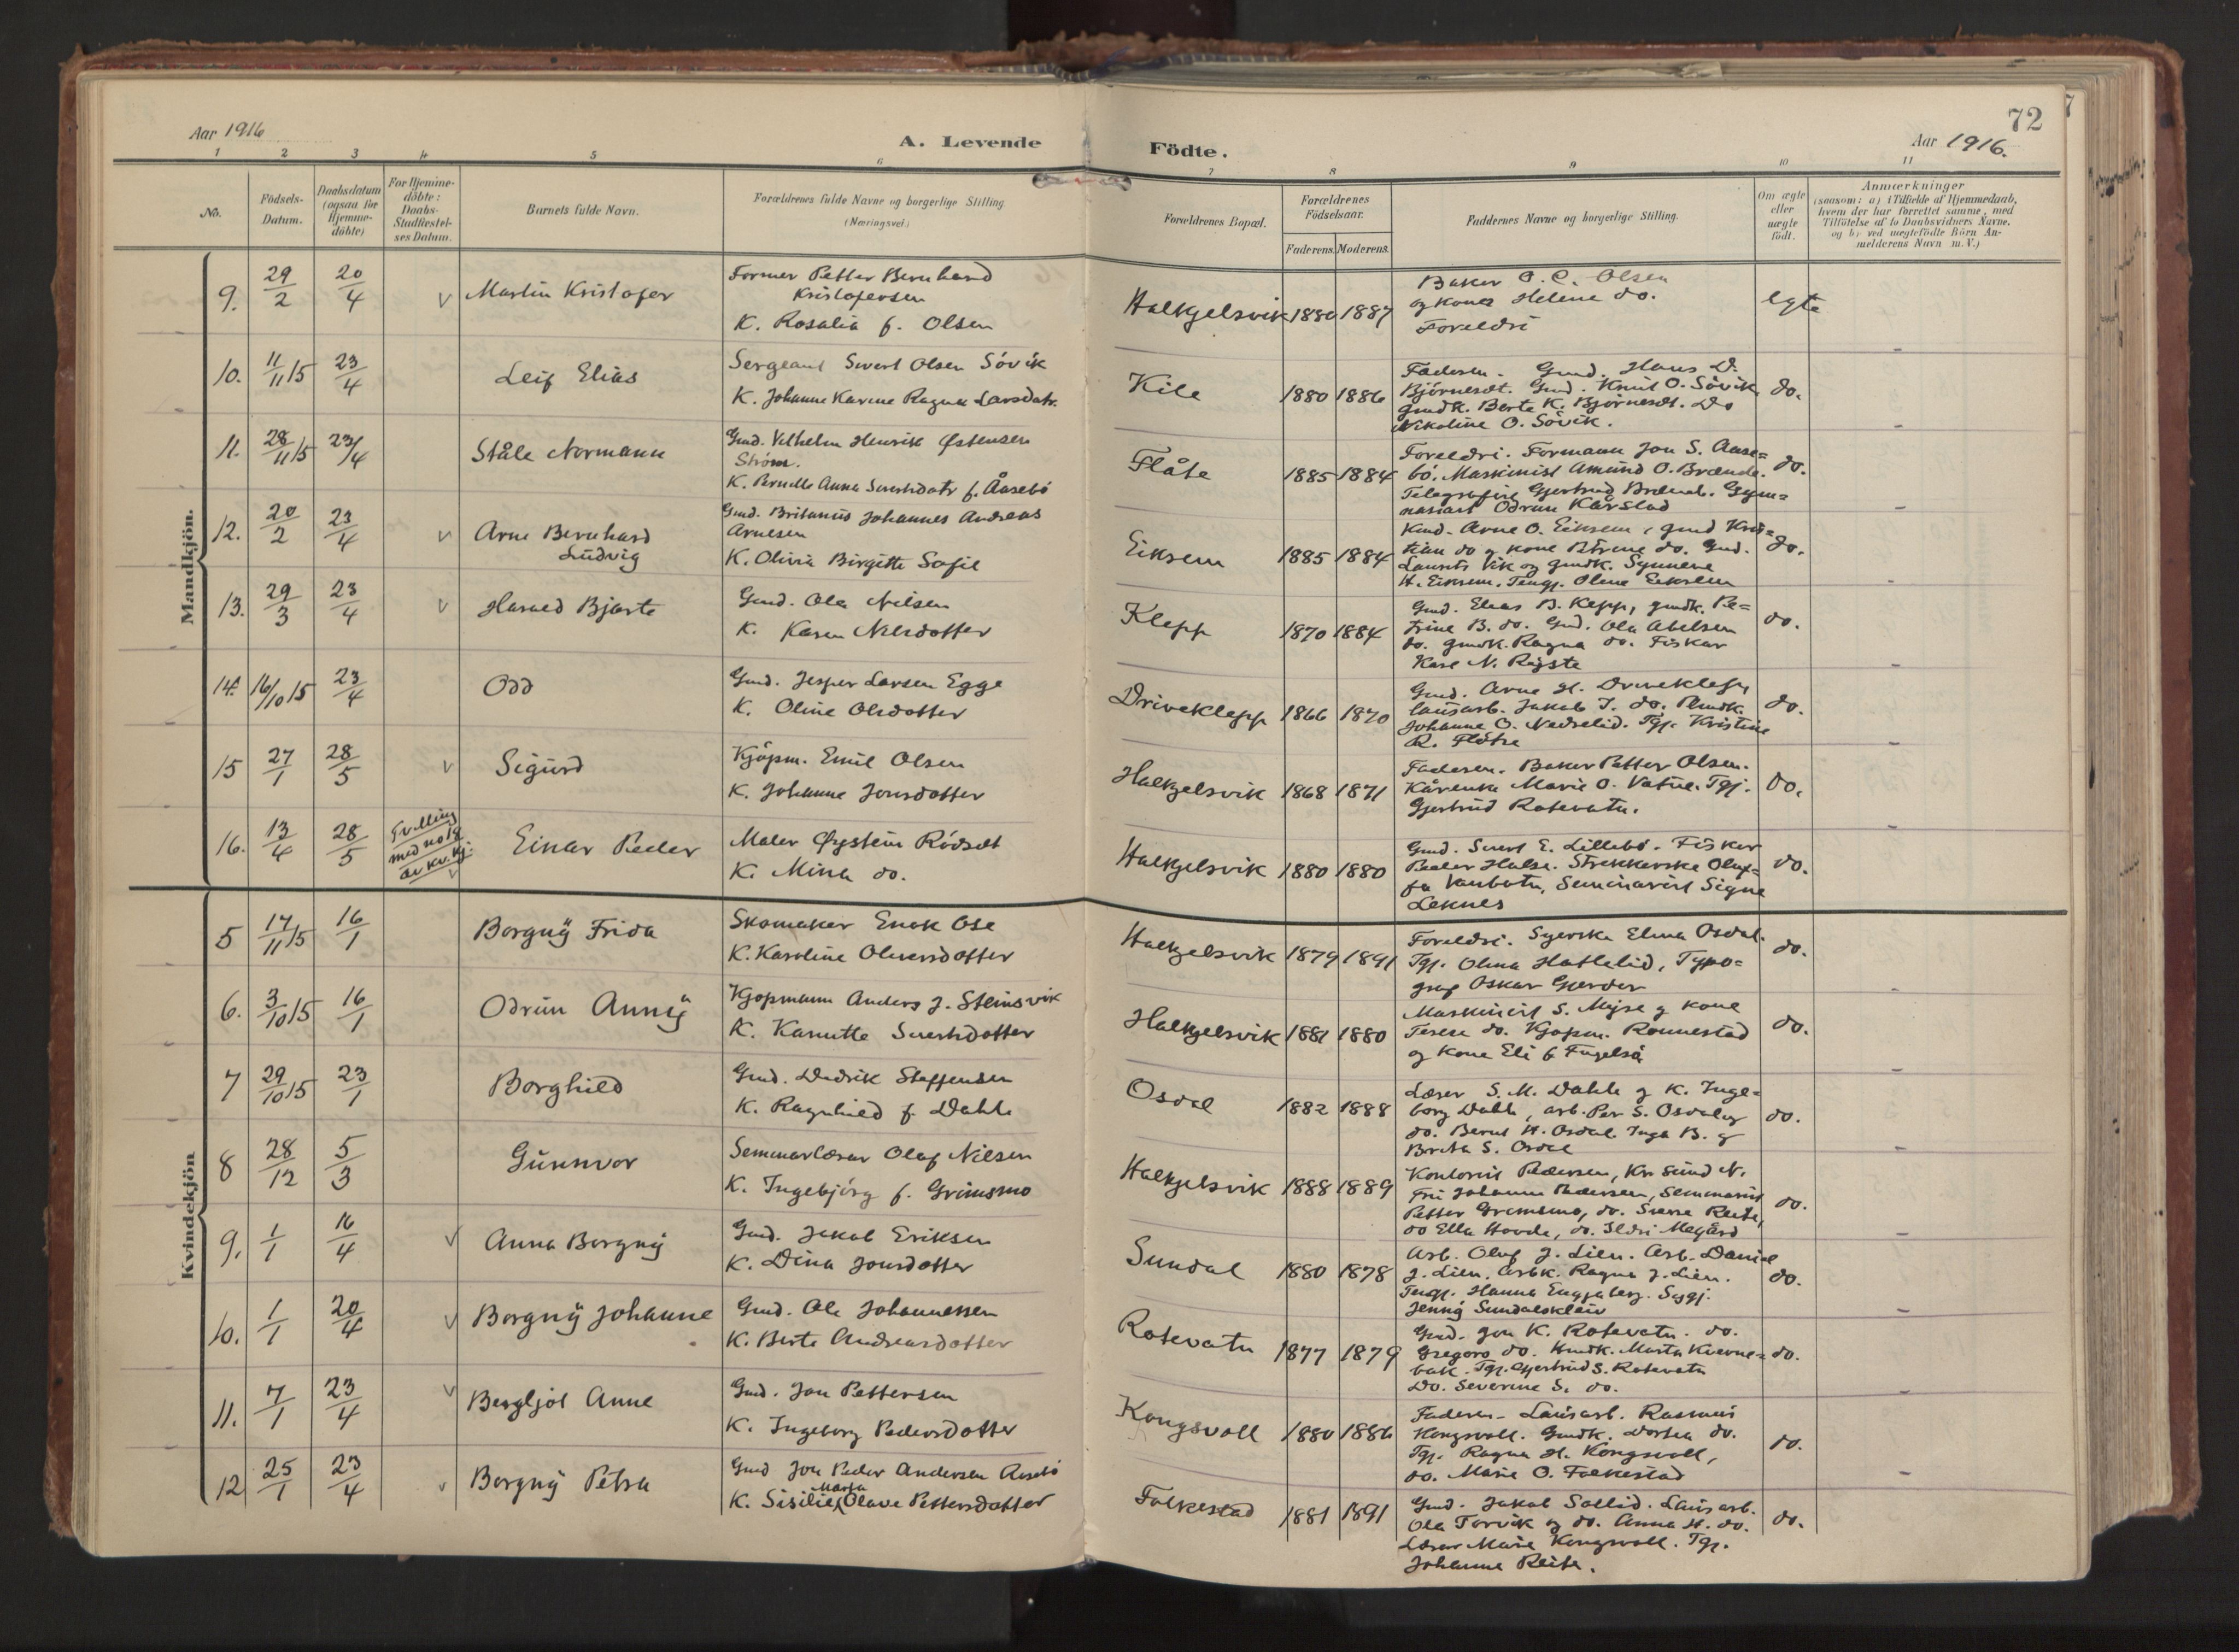 72
Aar 1916
A. Levende Födte.
Aar 1916.
1 2 3 4 5 6 7 8 9 10 11
No.
Födsels-Datum.
Daabsdatum (ogsaa for Hjemme-döbte)
For Hjemme-döbte: Daabs-Stadfæstel-ses Datum.
Barnets fulde Navn.
Forældrenes fulde Navne og borgerlige Stilling. (Næringsvei.)
Forældrenes Bopæl.
Forældrenes Födselsaar.
Faderens. Moderens.
Faddernes Navne og borgerlige Stilling.
Om ægte eller uægte födt.
Anmærkninger
(saasom: a) i Tilfælde af Hjemmedaab,
hvem der har forrettet samme, med
Tilföielse af to Daabsvidners Navne.
og b) ved uegtefödte Börn An-
melderens Navn m.V.)
Mandkjön.
9. 29/2 20/4 v Martin Kristofer
Former Petter Bernhard
Kristofersen
K. Rosalia f. Olsen
Halkjelsvik 1880 1887
Baker O. C. Olsen
og kona Helene do.
Foreldri
egte
10. 11/11 15 23/4 Leif Elias
Sergeant Sivert Olsen Sövik
K. Johanne Karine Ragna Larsdatr.
Kile 1880 1886
Faderen. Gmd. Hans D.
Björnesdt. Gmd. Knut O. Sövik
gmdk. Berte K. Björnesdt. Do
Nikoline O. Sövik.
do.
11. 28/11 15 23/4 Ståle Normann
Gmd. Vilhelm Henrik Østensen
Ström.
K. Pernille Anna Sivertsdatr f. Åasebö
Flåte 1885 1884
Foreldri. Formann Jon S. Aase=
bö. Maskinist Amund O. Brænde.
Telegrafist Gjertrud Brænde. Gym=
nasiast Odrun Kårstad
do.
12. 20/2 23/4 v Arne Bernhard
Ludvig
Gmd. Britanus Johannes Andreas
Arnesen
K. Olivia Birgitte Sofie
Eiksem 1885 1884
Kmd. Arne O. Eiksem, gmd Kris=
tian do og kone Bërene do. Gmd.
Laurits Vik og gmdk. Synneve
H. Eiksem. Tengj. Oline Eiksem
do.
13. 29/3 23/4 v Harald Bjarte
Gmd. Ola Nilsen
K. Karen Nilsdotter
Klepp 1870 1884
Gmd. Elias B. Klepp, gmdk. Pe=
trine B. do. Gmd. Ola Abelsen
do. gmdk. Ragna do. Fiskar
Kare N. Røyste
do.
14. 16/10 15 23/4 Odd
Gmd. Jesper Larsen Egge
K. Oline Olsdotter
Driveklepp 1866 1870
Gmd. Arne H. Driveklepp,
lausarb. Jakob J. do. Kmdk.
Johanne O. Nedrelid. Tgj. Kristine
R. Flötre
do.
15 27/1 28/5 v Sigurd
Kjöpm. Emil Olsen
K. Johanne Jonsdotter
Halkjelsvik 1868 1871
Faderen. Baker Petter Olsen.
Kårenke Marie O. Vatne. Tgj.
Gjertrud Rotevatn.
do.
16. 13/4 28/5
Tvilling
med no 19
av kv. kj.
v
Einar Peder
Maler Øystein Rödset
K. Mina do.
Halkjelsvik 1880 1880
Gmd. Sivert E. Lillebö. Fiskar
Peder Halse. Strikkerske Oluf=
fa Vanbotn, Seminarist Signe
Leknes
do.
Kvindekjön
5 17/11 15 16/1 Borgny Frida
Skomaker Enok Ose
K. Karoline Oliversdotter
Halkjelsvik 1879 1891
Foreldri. Syerska Elina Osdal.
Tgj. Olina Hatlelid, Typo=
graf Oskar Gjerder
do.
6. 3/10 15 16/1 Odrun Anny
Kjöpmann Anders J. Steinsvik
K. Kanutte Sivertsdotter
Halkjelsvik 1881 1880
Maskinist S. Myse og kone
Terese do. Kjöpm. Ronnestad
og kone Eli f Fugelsö
do.
7 29/10 15 23/1 Borghild
Gmd. Didrik Steffensen
K. Ragnhild f. Dahle
Osdal 1882 1888
Læser S. M. Dahle og K. Inge=
borg Dahle, arb. Per S. Osdal og
do. Bernt H. Osdal. Inga B. og
Berta S. Osdal
do.
8 28/12 5/3 Gunnvor
Seminarlærar Olaf Nilsen
K. Ingebjörg f. Grimsmo
Halkjelsvik 1888 1889
Kontorist Pedersen, Kr. Sund N.
Fru Johanna Pedersen, Seminarist
Petter Grimsmo, do. Sverre Reite,
do Ella Hovde, do. Ildri Megård
do.
9. 1/1 16/4 v Anna Borgny
Gmd. Jakob Eriksen
K. Dina Jonsdotter
Sundal 1880 1878
Arb. Oluf J. Lien. Arb. Daniel
J. Lien. Arbk. Ragna J. Lien.
Tengj. Hanna Engjaberg. Sygj.
Jenny Sundalskleiv
do.
10. 1/1 20/4 v Borgny Johanne
Gmd. Ole Johannessen
K. Berte Andreasdotter
Rotevatn 1877 1879
Gmd. Jon K. Rotevatn. do.
Gregors do. Kmdk. Marta Kverne=
bak. Tgj. Gjertrud S. Rotevatn
Do. Severine S. do.
do.
11. 7/1 23/4 v Bergljot Anne
Gmd. Jon Pettersen
K. Ingeborg Pedersdotter
Kongsvoll 1880 1886
Faderen. Lausarb. Rasmus
Kongsvoll. Gmdk. Dortea do.
Tgj. Ragna H. Kongsvoll,
do. Marie O. Folkestad
do.
12 25/1 23/4 v Borgny Petra
Gmd Jon Peder Andersen Aasebö
K. Sisilie Marta Olave Pettersdotter
Folkestad 1881 1891
Gmd. Jakob Sollid. Lausarb.
Ola Torvik og do. Anna H. do.
Lærar Marie Kongsvoll. Tgj.
Johanne Reite.
do.